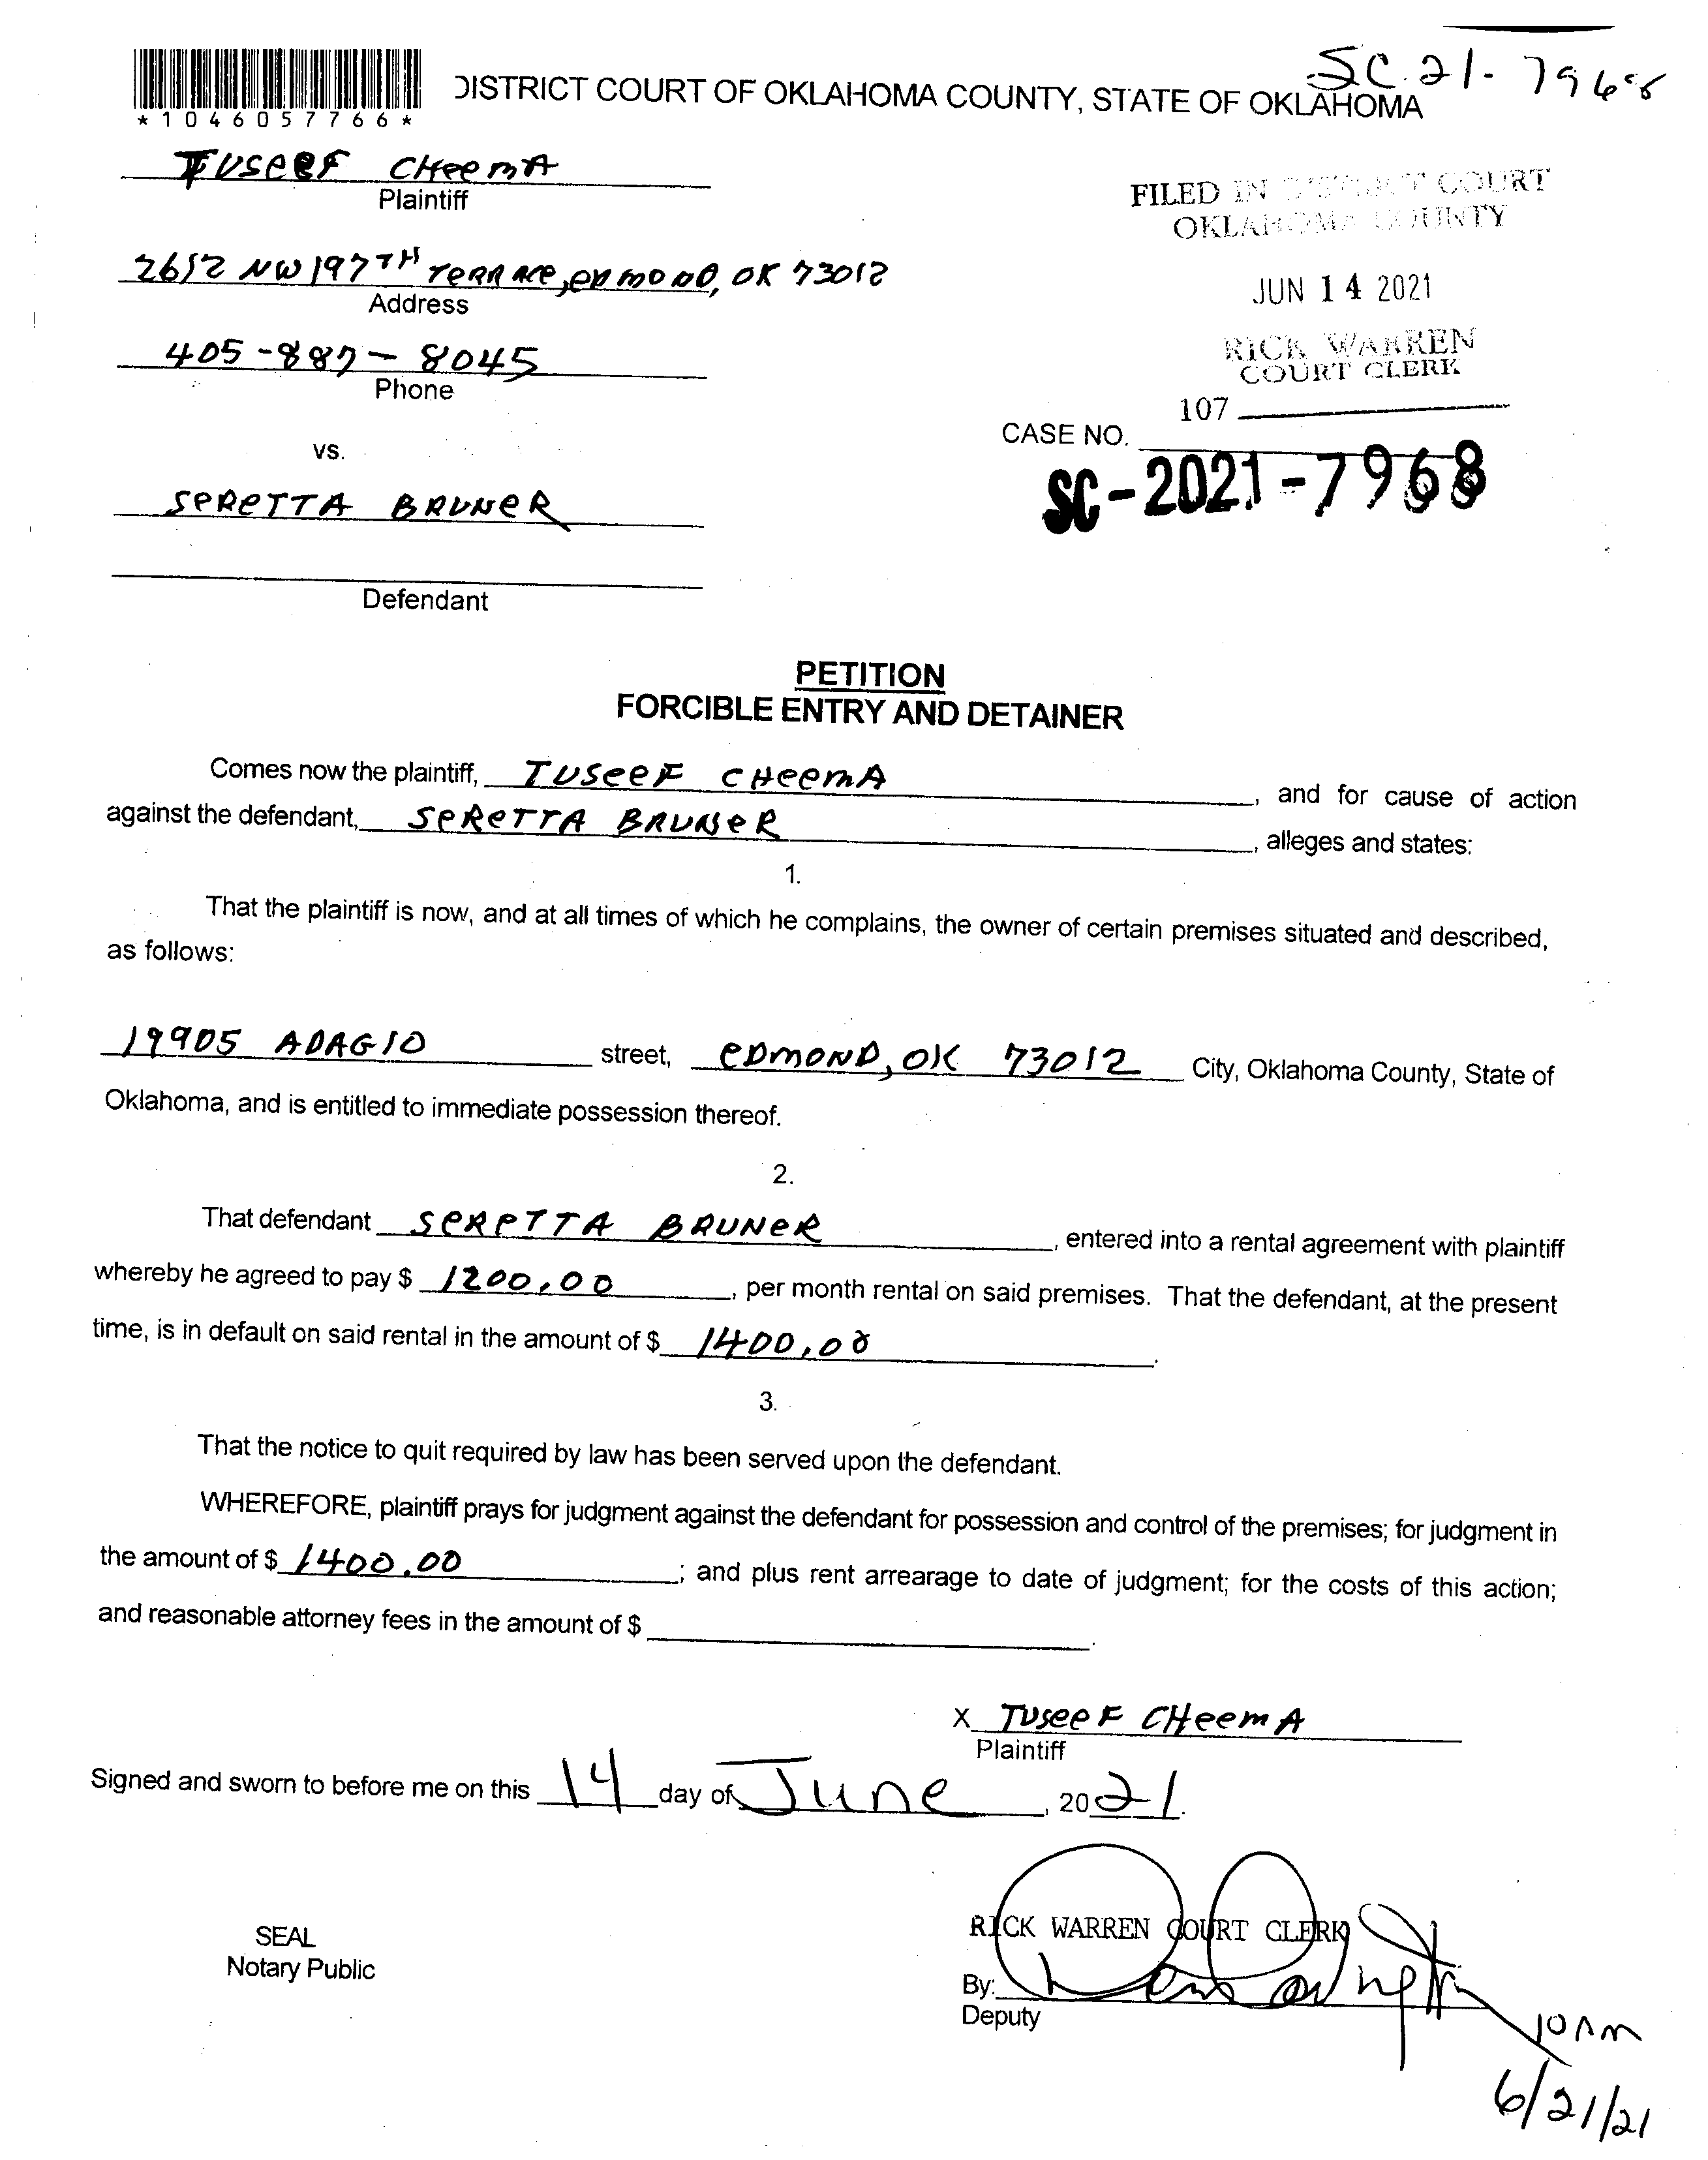 SC 21- 7968
*1046057766*
DISTRICT COURT OF OKLAHOMA COUNTY, STATE OF OKLAHOMA
TUSEEF CHEEMA
Plaintiff
FILED IN DISTRICT COURT
OKLAHOMA COUNTY
2612 NW 197TH TERRACE, EDMOND, OK 73012
Address
JUN 14 2021
RICK WARREN
COURT CLERK
405-887-8045
Phone
107
CASE NO.
vs.
SC-2021-7968
SERETTA BRUNER
Defendant
PETITION
FORCIBLE ENTRY AND DETAINER
Comes now the plaintiff, TUSEEF CHEEMA, and for cause of action
against the defendant, SERETTA BRUNER, alleges and states:
1.
That the plaintiff is now, and at all times of which he complains, the owner of certain premises situated and described,
as follows:
19905 ADAGIO street, EDMOND, OK 73012 City, Oklahoma County, State of
Oklahoma, and is entitled to immediate possession thereof.
2.
That defendant SERETTA BRUNER, entered into a rental agreement with plaintiff
whereby he agreed to pay $ 1200.00, per month rental on said premises. That the defendant, at the present
time, is in default on said rental in the amount of $ 1400.00.
3.
That the notice to quit required by law has been served upon the defendant.
WHEREFORE, plaintiff prays for judgment against the defendant for possession and control of the premises; for judgment in
the amount of $ 1400.00; and plus rent arrearage to date of judgment; for the costs of this action;
and reasonable attorney fees in the amount of $ .
X TUSEEF CHEEMA
Plaintiff
Signed and sworn to before me on this 14 day of June, 2021.
SEAL
Notary Public
RICK WARREN COURT CLERK
By:
Deputy
10 AM
6/21/21